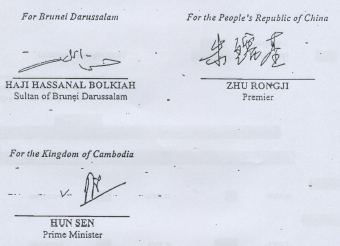 For Brunei Darussalam
For the People's Republic of China
朱镕基
HAJI HASSANAL BOLKIAH
Sultan of Brunei Darussalam
ZHU RONGJI
Premier
For the Kingdom of Cambodia
HUN SEN
Prime Minister